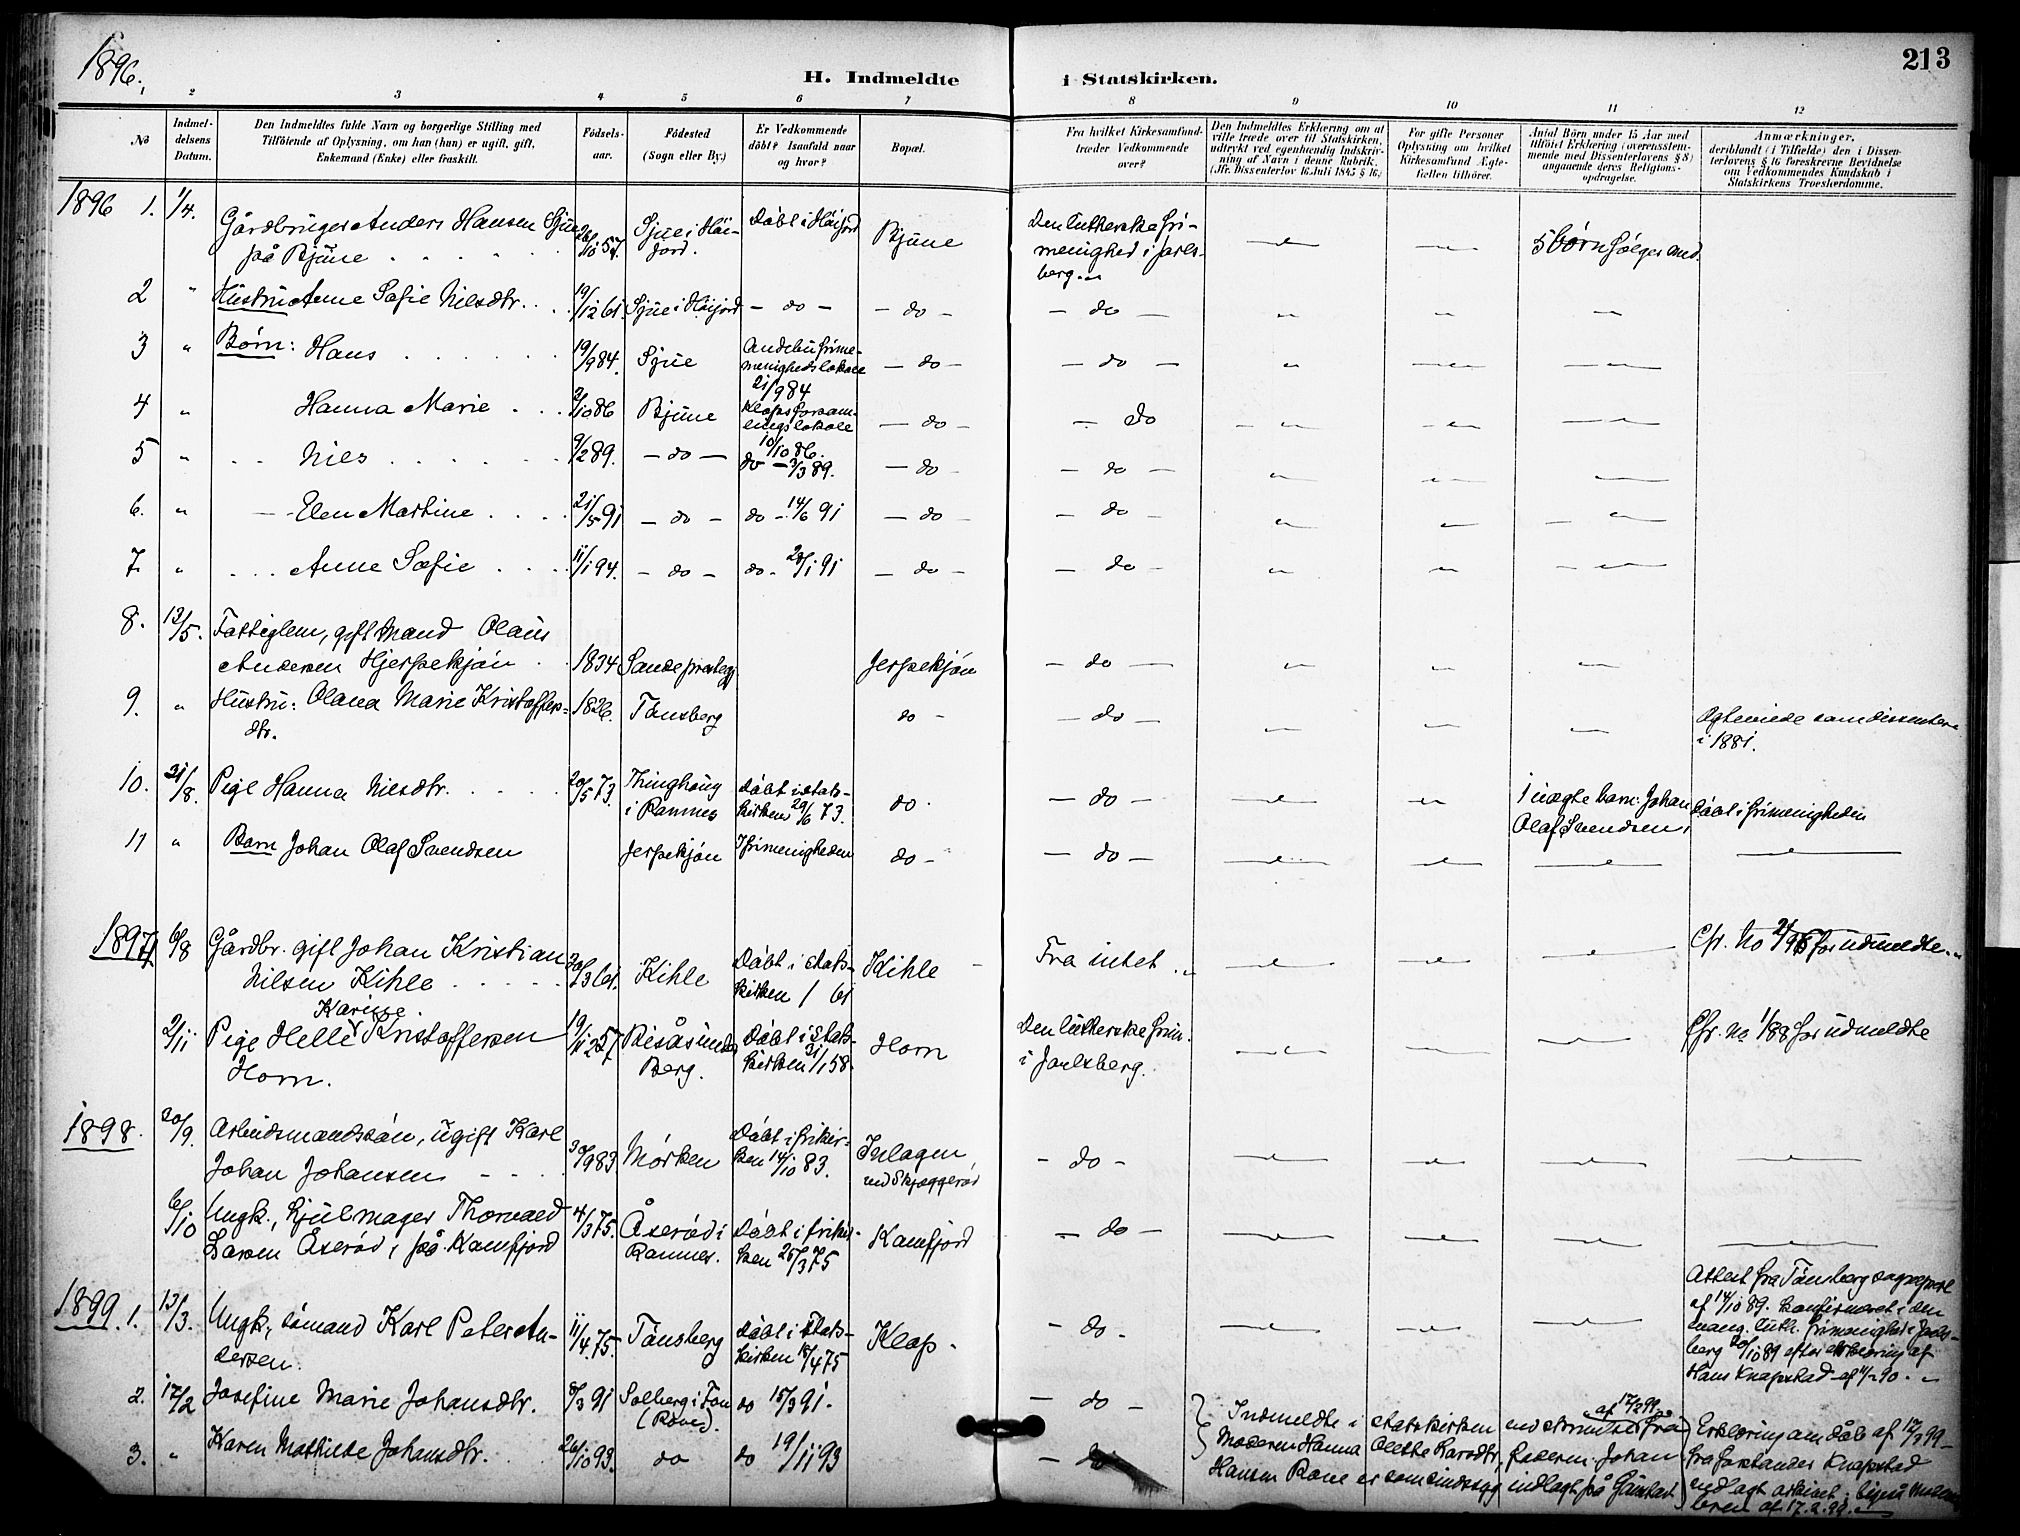 1896.
H. Indmeldte
i Statskirken.
213
1 2 3 4 5 6 7 8 9 10 11 12
No
Indmel-
delsens
Datum.
Den Indmeldtes fulde Navn og borgerlige Stilling med
Tilföiende af Oplysning, om han (hun) er ugift, gift,
Enkemand (Enke) eller fraskilt.
Födsels-
aar.
Födested
(Sogn eller By.)
Er Vedkommende
döbt? Isaafald naar
og hvor?
Bopæl.
Fra hvilket Kirkesamfund
træder Vedkommende
over?
Den Indmeldtes Erklæring om at
ville træde over til Statskirken,
udtrykt ved egenhændig Indskriv-
ning af Navn i denne Rubrik.
(Jfr. Dissenterlov 16. Juli 1845 § 16.)
For gifte Personer
Oplysning om hvilket
Kirkesamfund Ægte-
fællen tilhörer.
Antal Börn under 15 Aar med
tilföiet Erklæring (overensstem-
mende med Dissenterlovens § 8)
angaaende deres Religions-
opdragelse.
Anmærkninger,
deriblandt (i Tilfælde) den i Dissen-
terlovens § 16 foreskrevne Bevidnelse
om Vedkommendes Kundskab i
Statskirkens Troesherdomme.
1896 1. 1/4. Gårdbruger Anders Hansen Sjue
på Bjune 26/10 57. Sjue i Höi-
jord. Döbt i Höijord Bjune Den lutherske fri-
menighed i Jarls-
berg. 5 børn følger med.
2 " Hustru Anne Sofie Nilsdtr. 19/12 61. Sjue i Höijord - do - - do - - do -
3 " Børn: Hans 19/9 84. Sjue Andebu frime-
menigheds lokale
21/9 84 - do - - do -
4 " Hanna Marie 2/10 86 Bjune Klops forsam-
lings lokale
10/10 86. - do - - do
5 " Nils 9/2 89. - do - do - 3/3 89. - do - - do -
6. " Elen Martine 21/5 91 - do - do - 14/6 91 - do - - do -
7. " Anne Sofie 11/1 94. - do - do - 28/1 91 - do - - do -
8. 13/5. Fattiglem, gift mand Olaus
Andersen Hjerpekjøn 1834 Sande præsteg. Jerpekjön - do -
9. " Hustru: Olava Marie Kristoffers-
dtr. 1826. Tönsberg do - - do - Ægteviede som dissentere
i 1881.
10. 31/8. Pige Hanna Nilsdtr. 20/5 73. Thinghaug
i Ramnes Döbt i stats-
kirken 29/6 73. do. - do - 1 uægte barn: Johan
Olaf Svendsen, döbt i frimenigheden
11 " Barn Johan Olaf Svendsen Jerpekjön I frimenigheden do - - do -
1897 6/8 Gårdbr. gift Johan Kristian
Nilsen Kihle 30/3 61. Kihle Döbt i stats-
kirken / 61 Kihle Fra intet. Cfr. No 2/96 for udmeldte.
Karine.
2/11 Pige Helle Kristoffersen
Horn. 19/12 57 Döbt i stats-
kirken 31/1 58. Horn Den lutherske frim.
i Jarlsberg. Cfr. No 1/88 for udmeldte
Berg.
1898. 20/9. Arbeidsmandssön, ugift Karl
Johan Johansen 30/9 83 Mörken Döbt i frikir-
ken 14/10 83. Inlagen
ved Skjæggerød - do -
6/10 Ungk., hjulmager Thorvald
Larsen Åserød, på Kamfjord 4/3 75. Åserød i
Ramnes. Döbt i frikir-
ken 25/3 75 Kamfjord - do -
1899. 1. 13/3. Ungk., sømand Karl Peter An-
dersen. 11/4 75. Tönsberg Döbt i stats-
kirken 18/4 75 Klop. - do - Attest fra Tönsberg sogneprest
af 14/10 89. Konfirmeret i den
evang. luth. frimenighed i Jarls-
berg 20/10 89 efter erklæring af
Hans Knapstad af
2. 17/2 Josefine Marie Johansdtr. 8/3 91 Solberg i Fon
(Röve). do 15/3 91. - do -
3. " Karen Mathilde Johansdtr. 26/10 93. do do 19/11 93 - do -
Indmeldte i statskirken ved skrivelse fra
af 17/2 99
Moderen Hanna Olethe Larsdtr, Faderen Johan
Hansen Röve er som sindssyg indlagt på Gaustad.
Erklæring om dåb af 17/2 99
fra forstander Knapstad
vedlagt arkivet, ligeså
af 17.2.99.